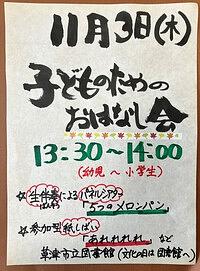 11月3日(木)
子どものための
おはなし会
13:30～14:00
(幼児～小学生)
☆生伴奏によるパネルシアター
「5つのメロンパン」
☆参加型紙しばい
「あれれれれ」など
草津市立図書館(文化の日は図書館へ)